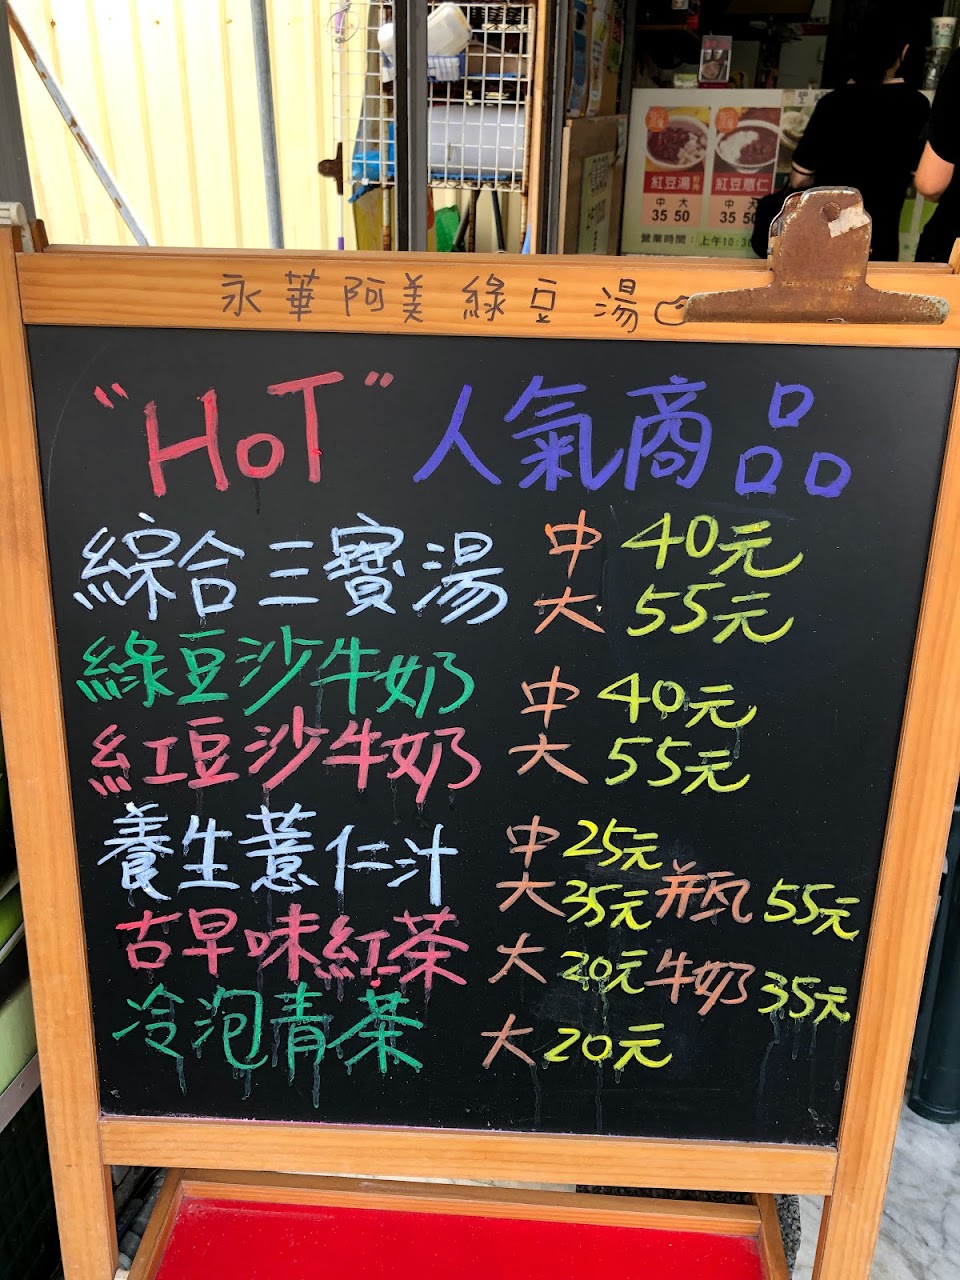 紅豆湯
中 大
35 50
紅豆薏仁
中 大
35 50
營業時間：上午10:30
永華阿美綠豆湯
"HOT" 人氣商品
綜合三寶湯 中 40元
大 55元
綠豆沙牛奶 中 40元
紅豆沙牛奶 大 55元
養生薏仁汁 中 25元
大 35元 瓶 55元
古早味紅茶 大 20元 牛奶 35元
冷泡青茶 大 20元